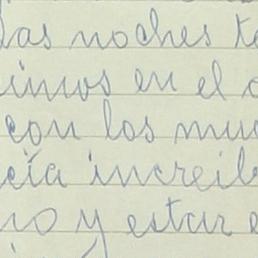 las noches te
imos en el c
con los muc
cía increib
no y estar e